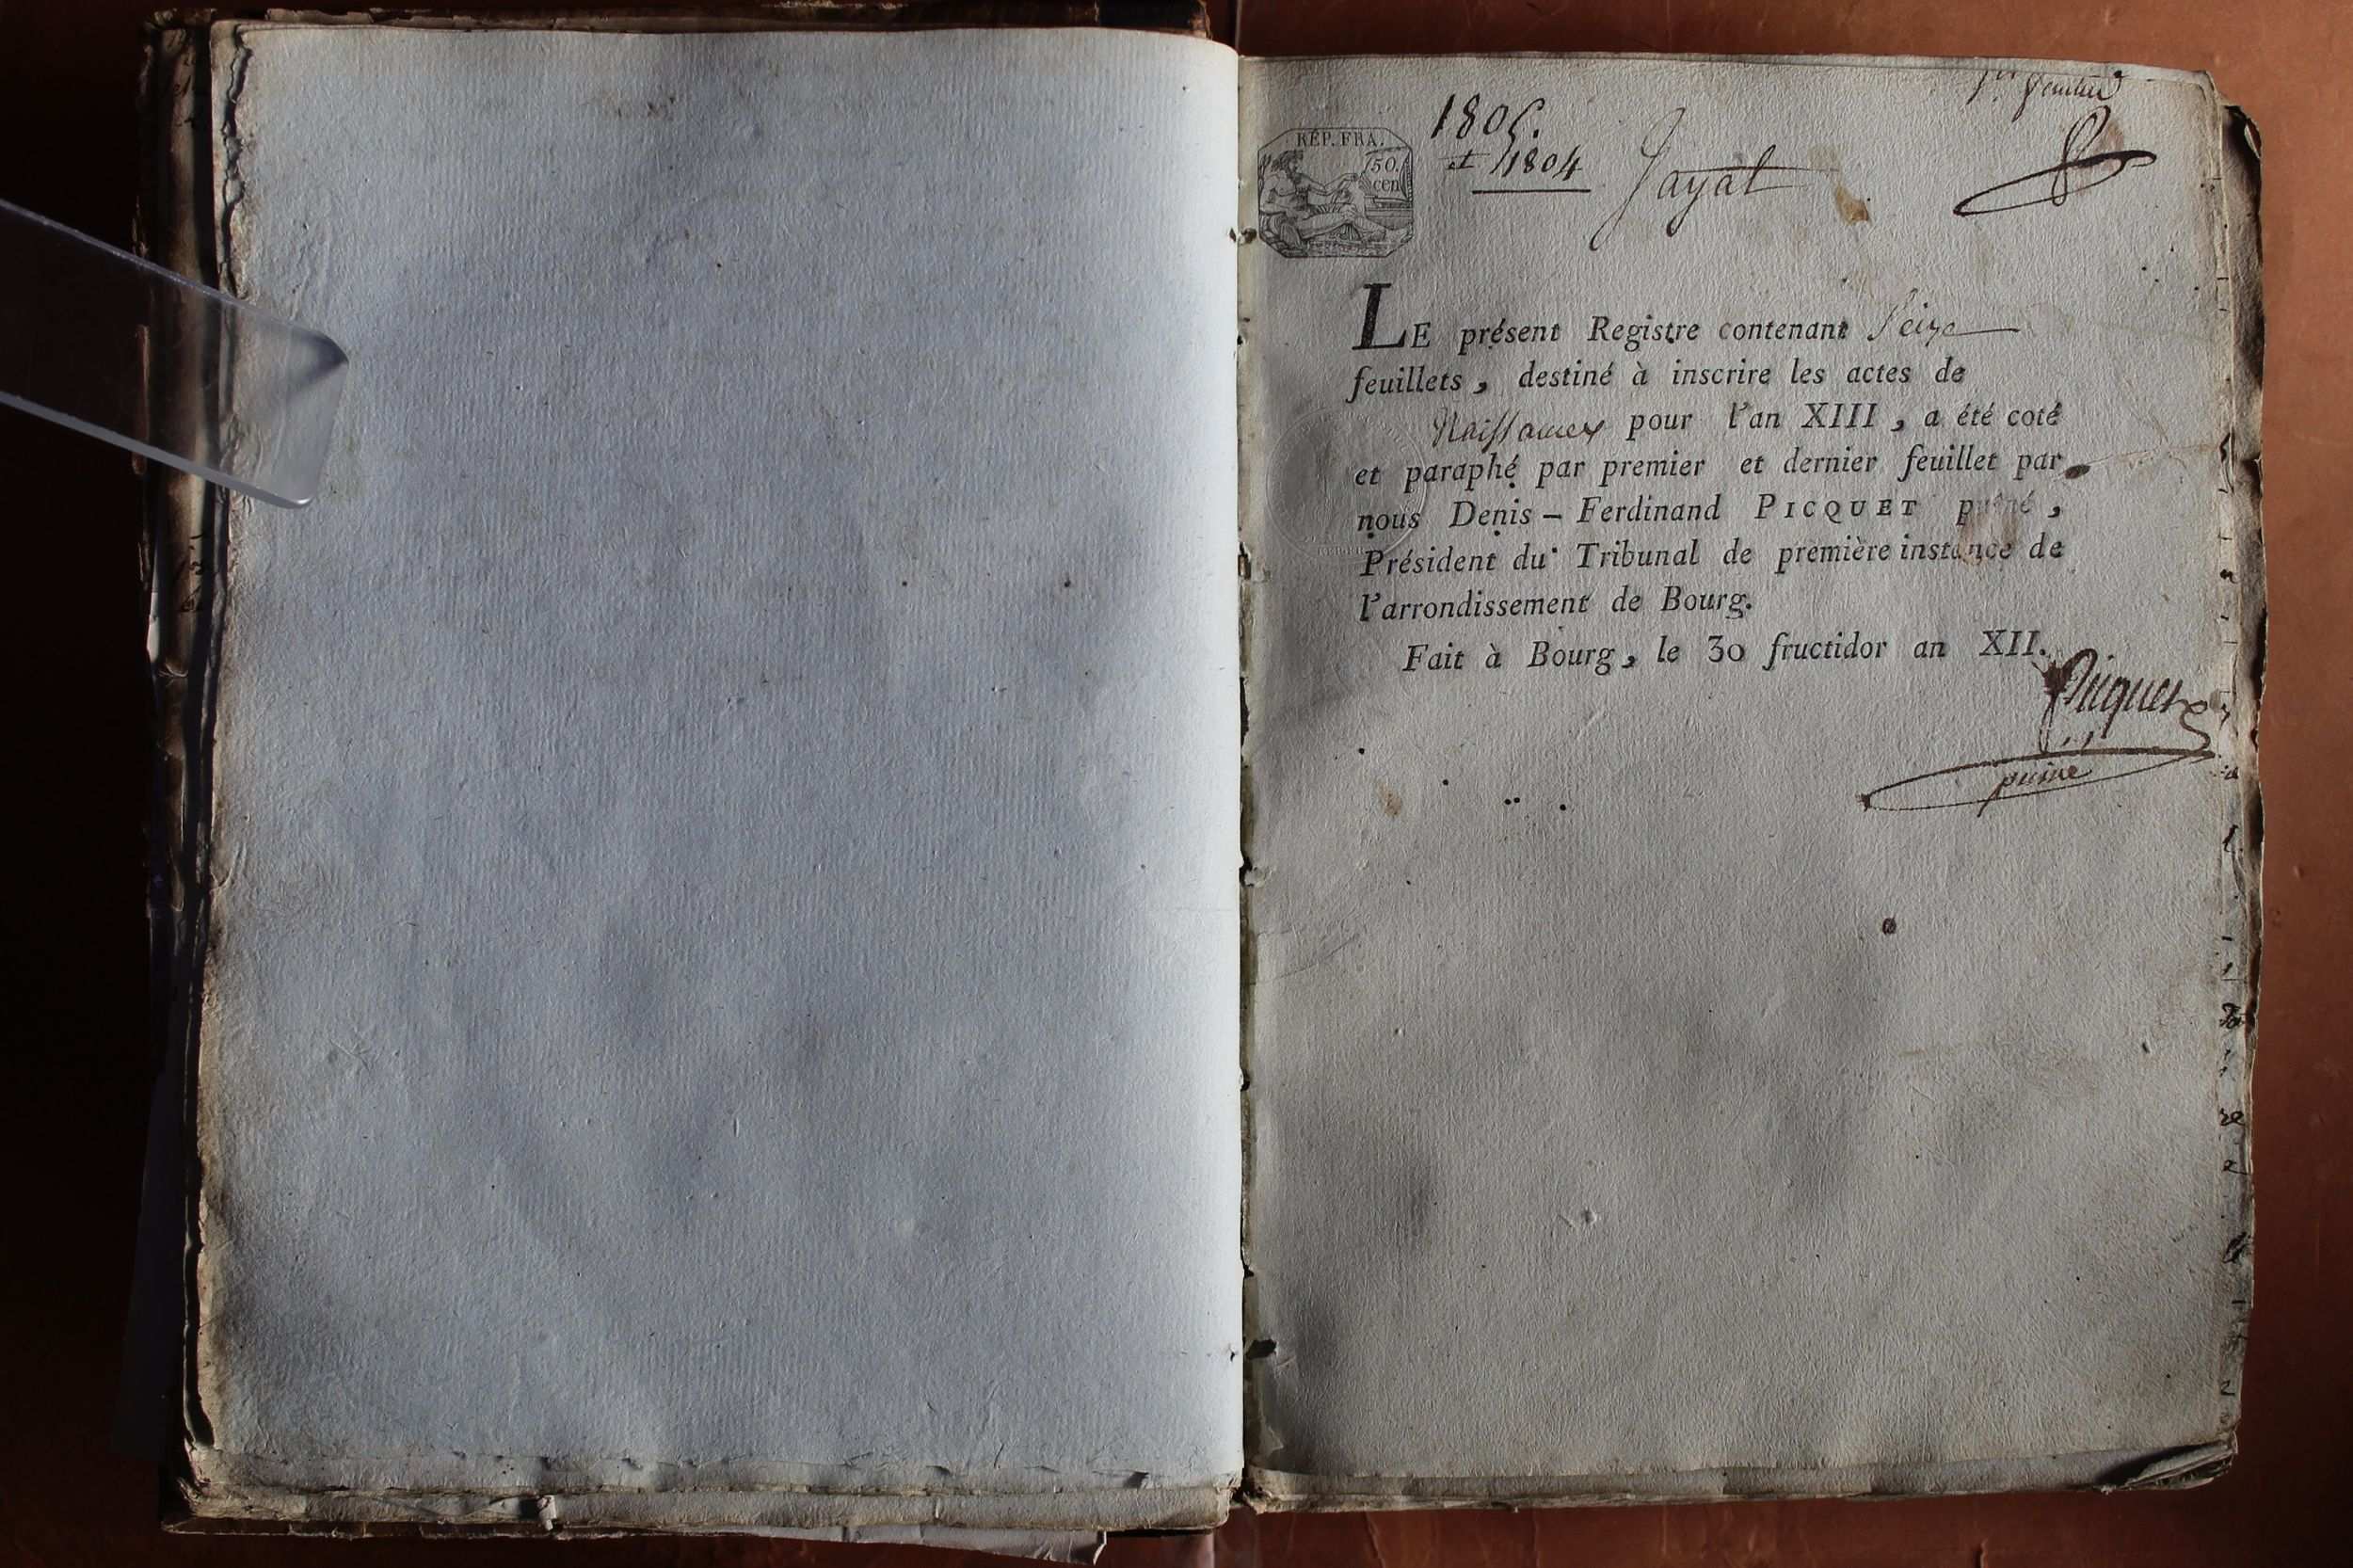 1er feuillet
1805.
et 1804
Jayat
RÉP. FRA.
50.
cen
LE présent Registre contenant Seize
feuillets, destiné à inscrire les actes de
Naissances pour l'an XIII, a été coté
et paraphé par premier et dernier feuillet par
nous Denis - Ferdinand PICQUET puîné,
Président du Tribunal de première instance de
l'arrondissement de Bourg.
Fait à Bourg, le 30 fructidor an XII.
Picquet
puiné